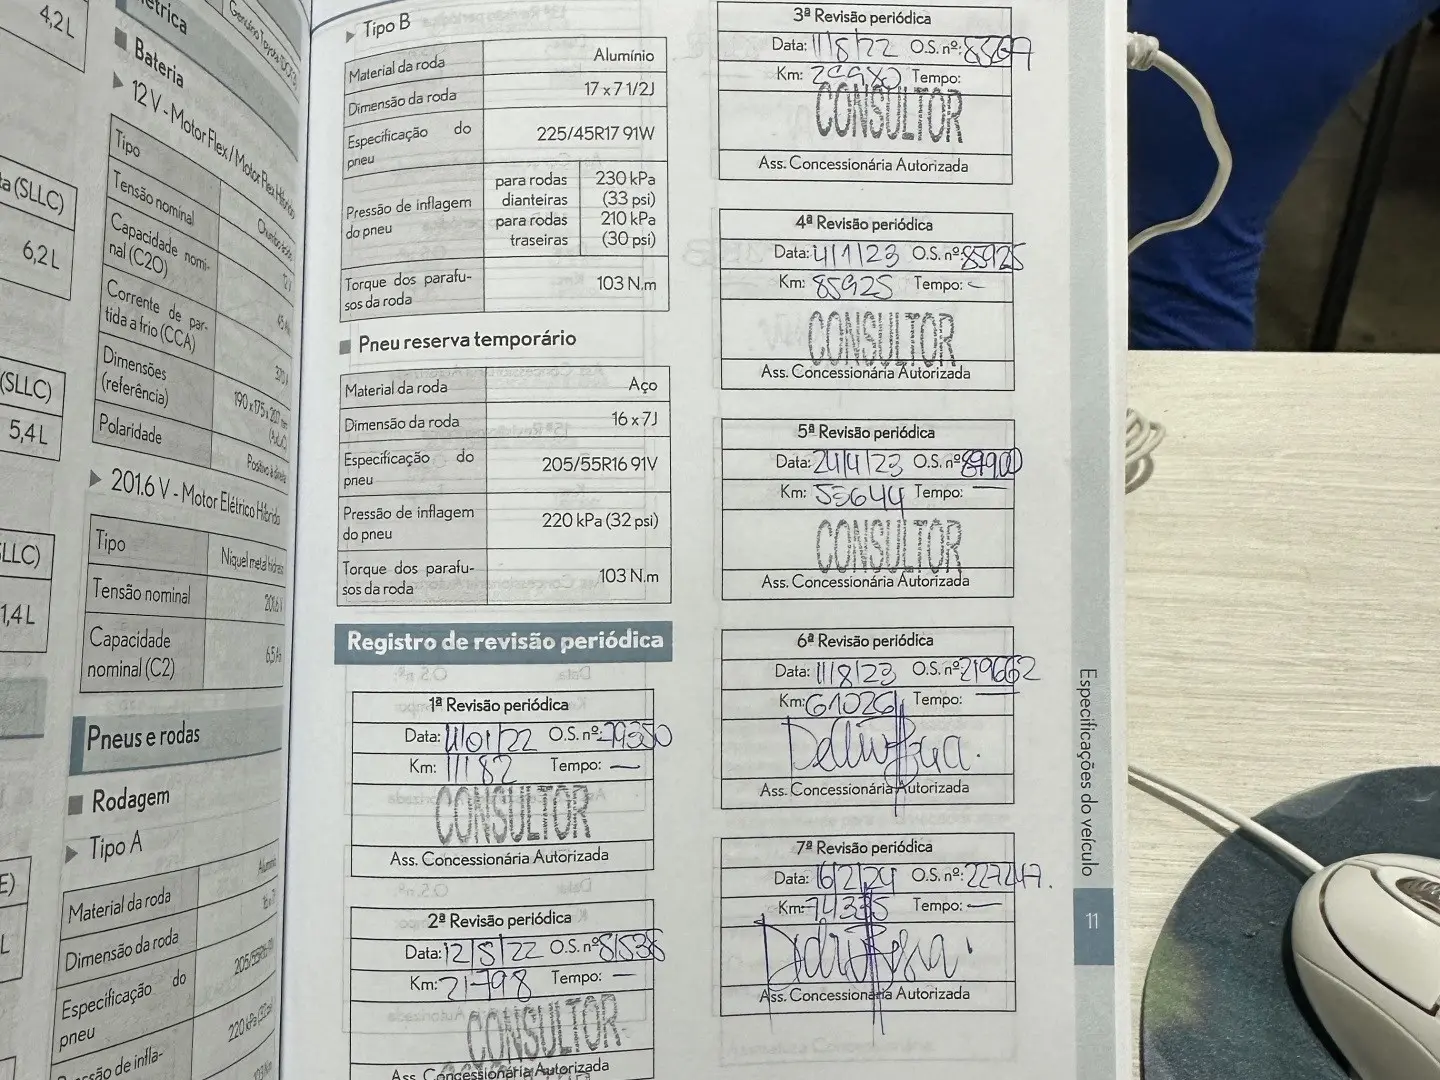 4,2 L
ta (SLLC)
6,2 L
(SLLC)
5,4 L
LLC)
1,4 L
E)
L
étrica
Genuíno Toyota
■ Bateria
▶ 12 V - Motor Flex / Motor Flex Híbrido
Tipo Chumbo ácido
Tensão nominal 12 V
Capacidade nomi-
nal (C20) 45 Ah
Corrente de par-
tida a frio (CCA) 370 A
Dimensões
(referência) 190 x 175 x 200 mm
(AxLxC)
Polaridade Positivo à direita
▶ 201.6 V - Motor Elétrico Híbrido
Tipo Níquel metal hidreto
Tensão nominal 201.6 V
Capacidade
nominal (C2) 6,5 Ah
Pneus e rodas
■ Rodagem
▶ Tipo A
Material da roda Alumínio
Dimensão da roda
Especificação do
pneu 205/55R16 91V
ssão de infla- 220 kPa (32 psi)
▶ Tipo B
Material da roda Alumínio
Dimensão da roda 17 x 7 1/2J
Especificação do
pneu 225/45R17 91W
Pressão de inflagem
do pneu
para rodas
dianteiras
230 kPa
(33 psi)
para rodas
traseiras
210 kPa
(30 psi)
Torque dos parafu-
sos da roda 103 N.m
■ Pneu reserva temporário
Material da roda Aço
Dimensão da roda 16 x 7J
Especificação do
pneu 205/55R16 91V
Pressão de inflagem
do pneu 220 kPa (32 psi)
Torque dos parafu-
sos da roda 103 N.m
Registro de revisão periódica
1ª Revisão periódica
Data: 11/01/22 O.S. nº: 79350
Km: 11182 Tempo: —
CONSULTOR
Ass. Concessionária Autorizada
2ª Revisão periódica
Data: 12/5/22 O.S. nº: 81538
Km: 21798 Tempo: —
CONSULTOR
Ass. Concessionária Autorizada
3ª Revisão periódica
Data: 11/8/22 O.S. nº:
Km: Tempo:
CONSULTOR
Ass. Concessionária Autorizada
4ª Revisão periódica
Data: 4/1/23 O.S. nº: 85925
Km: 85925 Tempo: —
CONSULTOR
Ass. Concessionária Autorizada
5ª Revisão periódica
Data: 24/4/23 O.S. nº:
Km: 53644 Tempo: —
CONSULTOR
Ass. Concessionária Autorizada
6ª Revisão periódica
Data: 11/8/23 O.S. nº: 219662
Km: 61026 Tempo: —
Ass. Concessionária Autorizada
7ª Revisão periódica
Data: 16/2/24 O.S. nº: 227247.
Km: 74335 Tempo: —
Ass. Concessionária Autorizada
Especificações do veículo
11